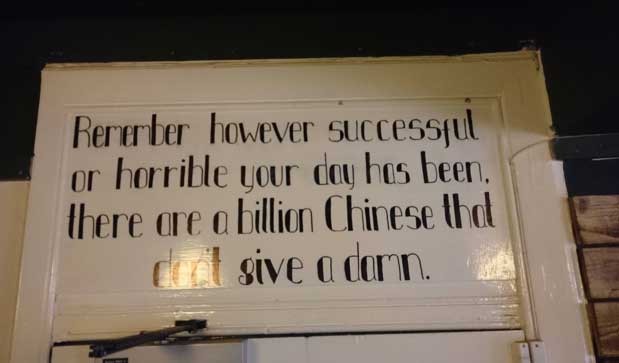 Remember however successful
or horrible your day has been,
there are a billion Chinese that
don't give a damn.